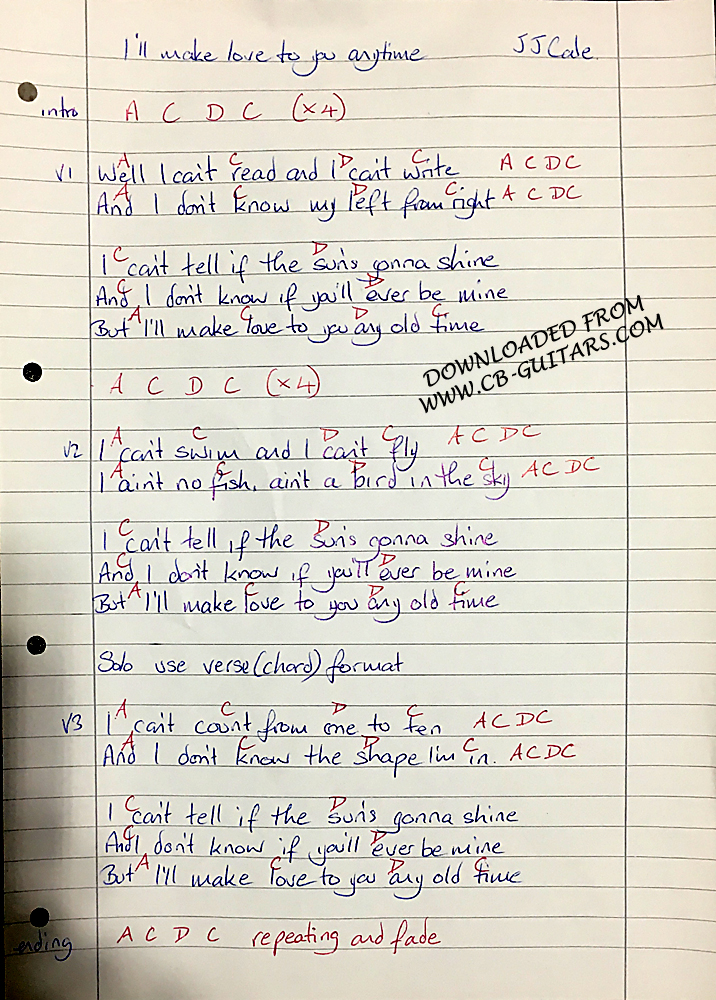 I'll make love to you anytime JJ Cale
intro A C D C (x4)
A C D C
V1 Well I can't read and I can't write A C D C
A C D C
And I don't know my left from right A C D C
C D
I can't tell if the sun's gonna shine
C D
And I don't know if you'll ever be mine
A C D C
But I'll make love to you any old time
A C D C (x4)
A C D C
V2 I can't swim and I can't fly A C D C
A C D C
I ain't no fish, ain't a bird in the sky A C D C
C D
I can't tell if the sun's gonna shine
C D
And I don't know if you'll ever be mine
A C D C
But I'll make love to you any old time
Solo use verse (chord) format
A C D C
V3 I can't count from one to ten A C D C
A C D C
And I don't know the shape I'm in. A C D C
C D
I can't tell if the sun's gonna shine
C D
And I don't know if you'll ever be mine
A C D C
But I'll make love to you any old time
ending A C D C repeating and fade
DOWNLOADED FROM
WWW.CB-GUITARS.COM